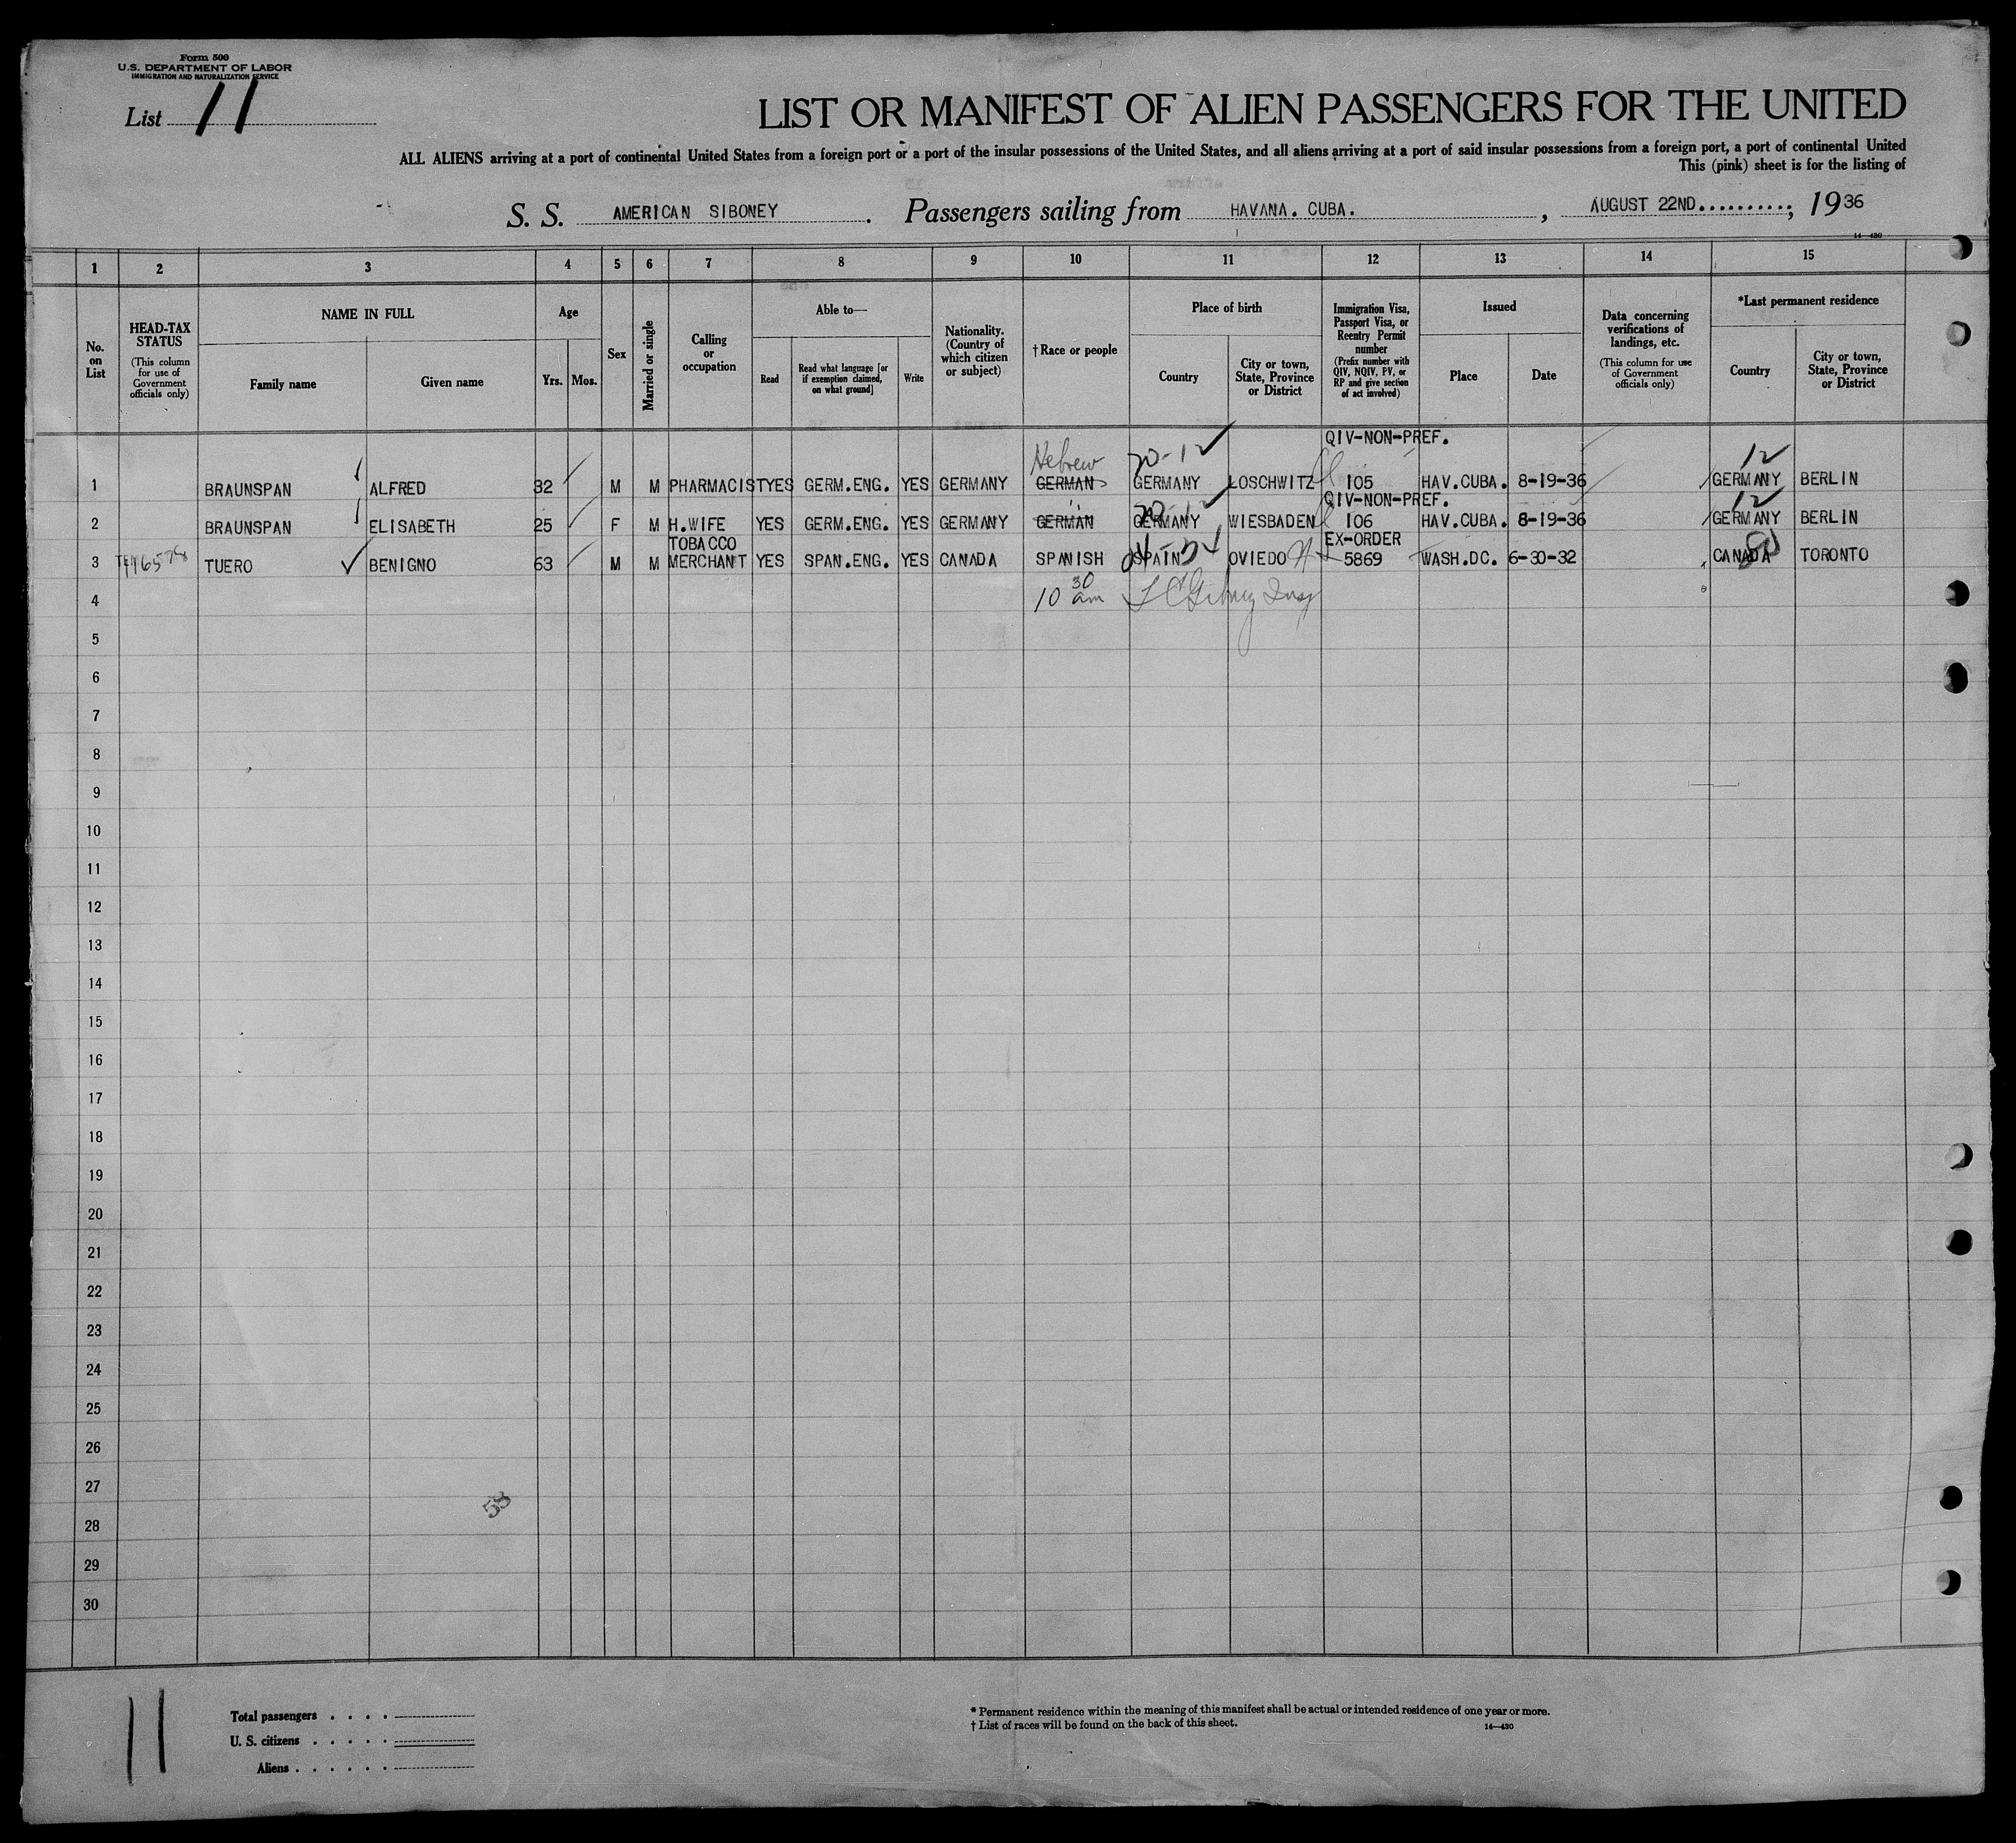 Form 500
U.S. DEPARTMENT OF LABOR
IMMIGRATION AND NATURALIZATION SERVICE
List 11
LIST OR MANIFEST OF ALIEN PASSENGERS FOR THE UNITED
ALL ALIENS arriving at a port of continental United States from a foreign port or a port of the insular possessions of the United States, and all aliens arriving at a port of said insular possessions from a foreign port, a port of continental United
This (pink) sheet is for the listing of
S. S. AMERICAN SIBONEY. Passengers sailing from HAVANA. CUBA. , AUGUST 22ND.........., 1936
14—430
1 2 3 4 5 6 7 8 9 10 11 12 13 14 15
No. on List
HEAD-TAX STATUS
(This column for use of Government officials only)
NAME IN FULL
Family name
Given name
Age
Yrs. Mos.
Sex
Married or single
Calling or occupation
Able to—
Read
Read what language [or if exemption claimed, on what ground]
Write
Nationality. (Country of which citizen or subject)
†Race or people
Place of birth
Country
City or town, State, Province or District
Immigration Visa, Passport Visa, or Reentry Permit number
(Prefix number with QIV, NQIV, PV, or RP and give section of act involved)
Issued
Place
Date
Data concerning verifications of landings, etc.
(This column for use of Government officials only)
*Last permanent residence
Country
City or town, State, Province or District
QIV-NON-PREF.
Hebrew 20-12 12
1 BRAUNSPAN ALFRED 32 M M PHARMACIST YES GERM.ENG. YES GERMANY GERMAN GERMANY LOSCHWITZ 105 HAV.CUBA. 8-19-36 GERMANY BERLIN
QIV-NON-PREF.
12
2 BRAUNSPAN ELISABETH 25 F M H.WIFE YES GERM.ENG. YES GERMANY GERMAN GERMANY WIESBADEN 106 HAV.CUBA. 8-19-36 GERMANY BERLIN
TOBACCO EX-ORDER
3 TUERO BENIGNO 63 M M MERCHANT YES SPAN.ENG. YES CANADA SPANISH SPAIN OVIEDO 5869 WASH.DC. 6-30-32 CANADA TORONTO
4 10 30 am
5
6
7
8
9
10
11
12
13
14
15
16
17
18
19
20
21
22
23
24
25
26
27
53
28
29
30
11
Total passengers . . . .
U. S. citizens . . . . .
Aliens . . . . . .
* Permanent residence within the meaning of this manifest shall be actual or intended residence of one year or more.
† List of races will be found on the back of this sheet.
14—430